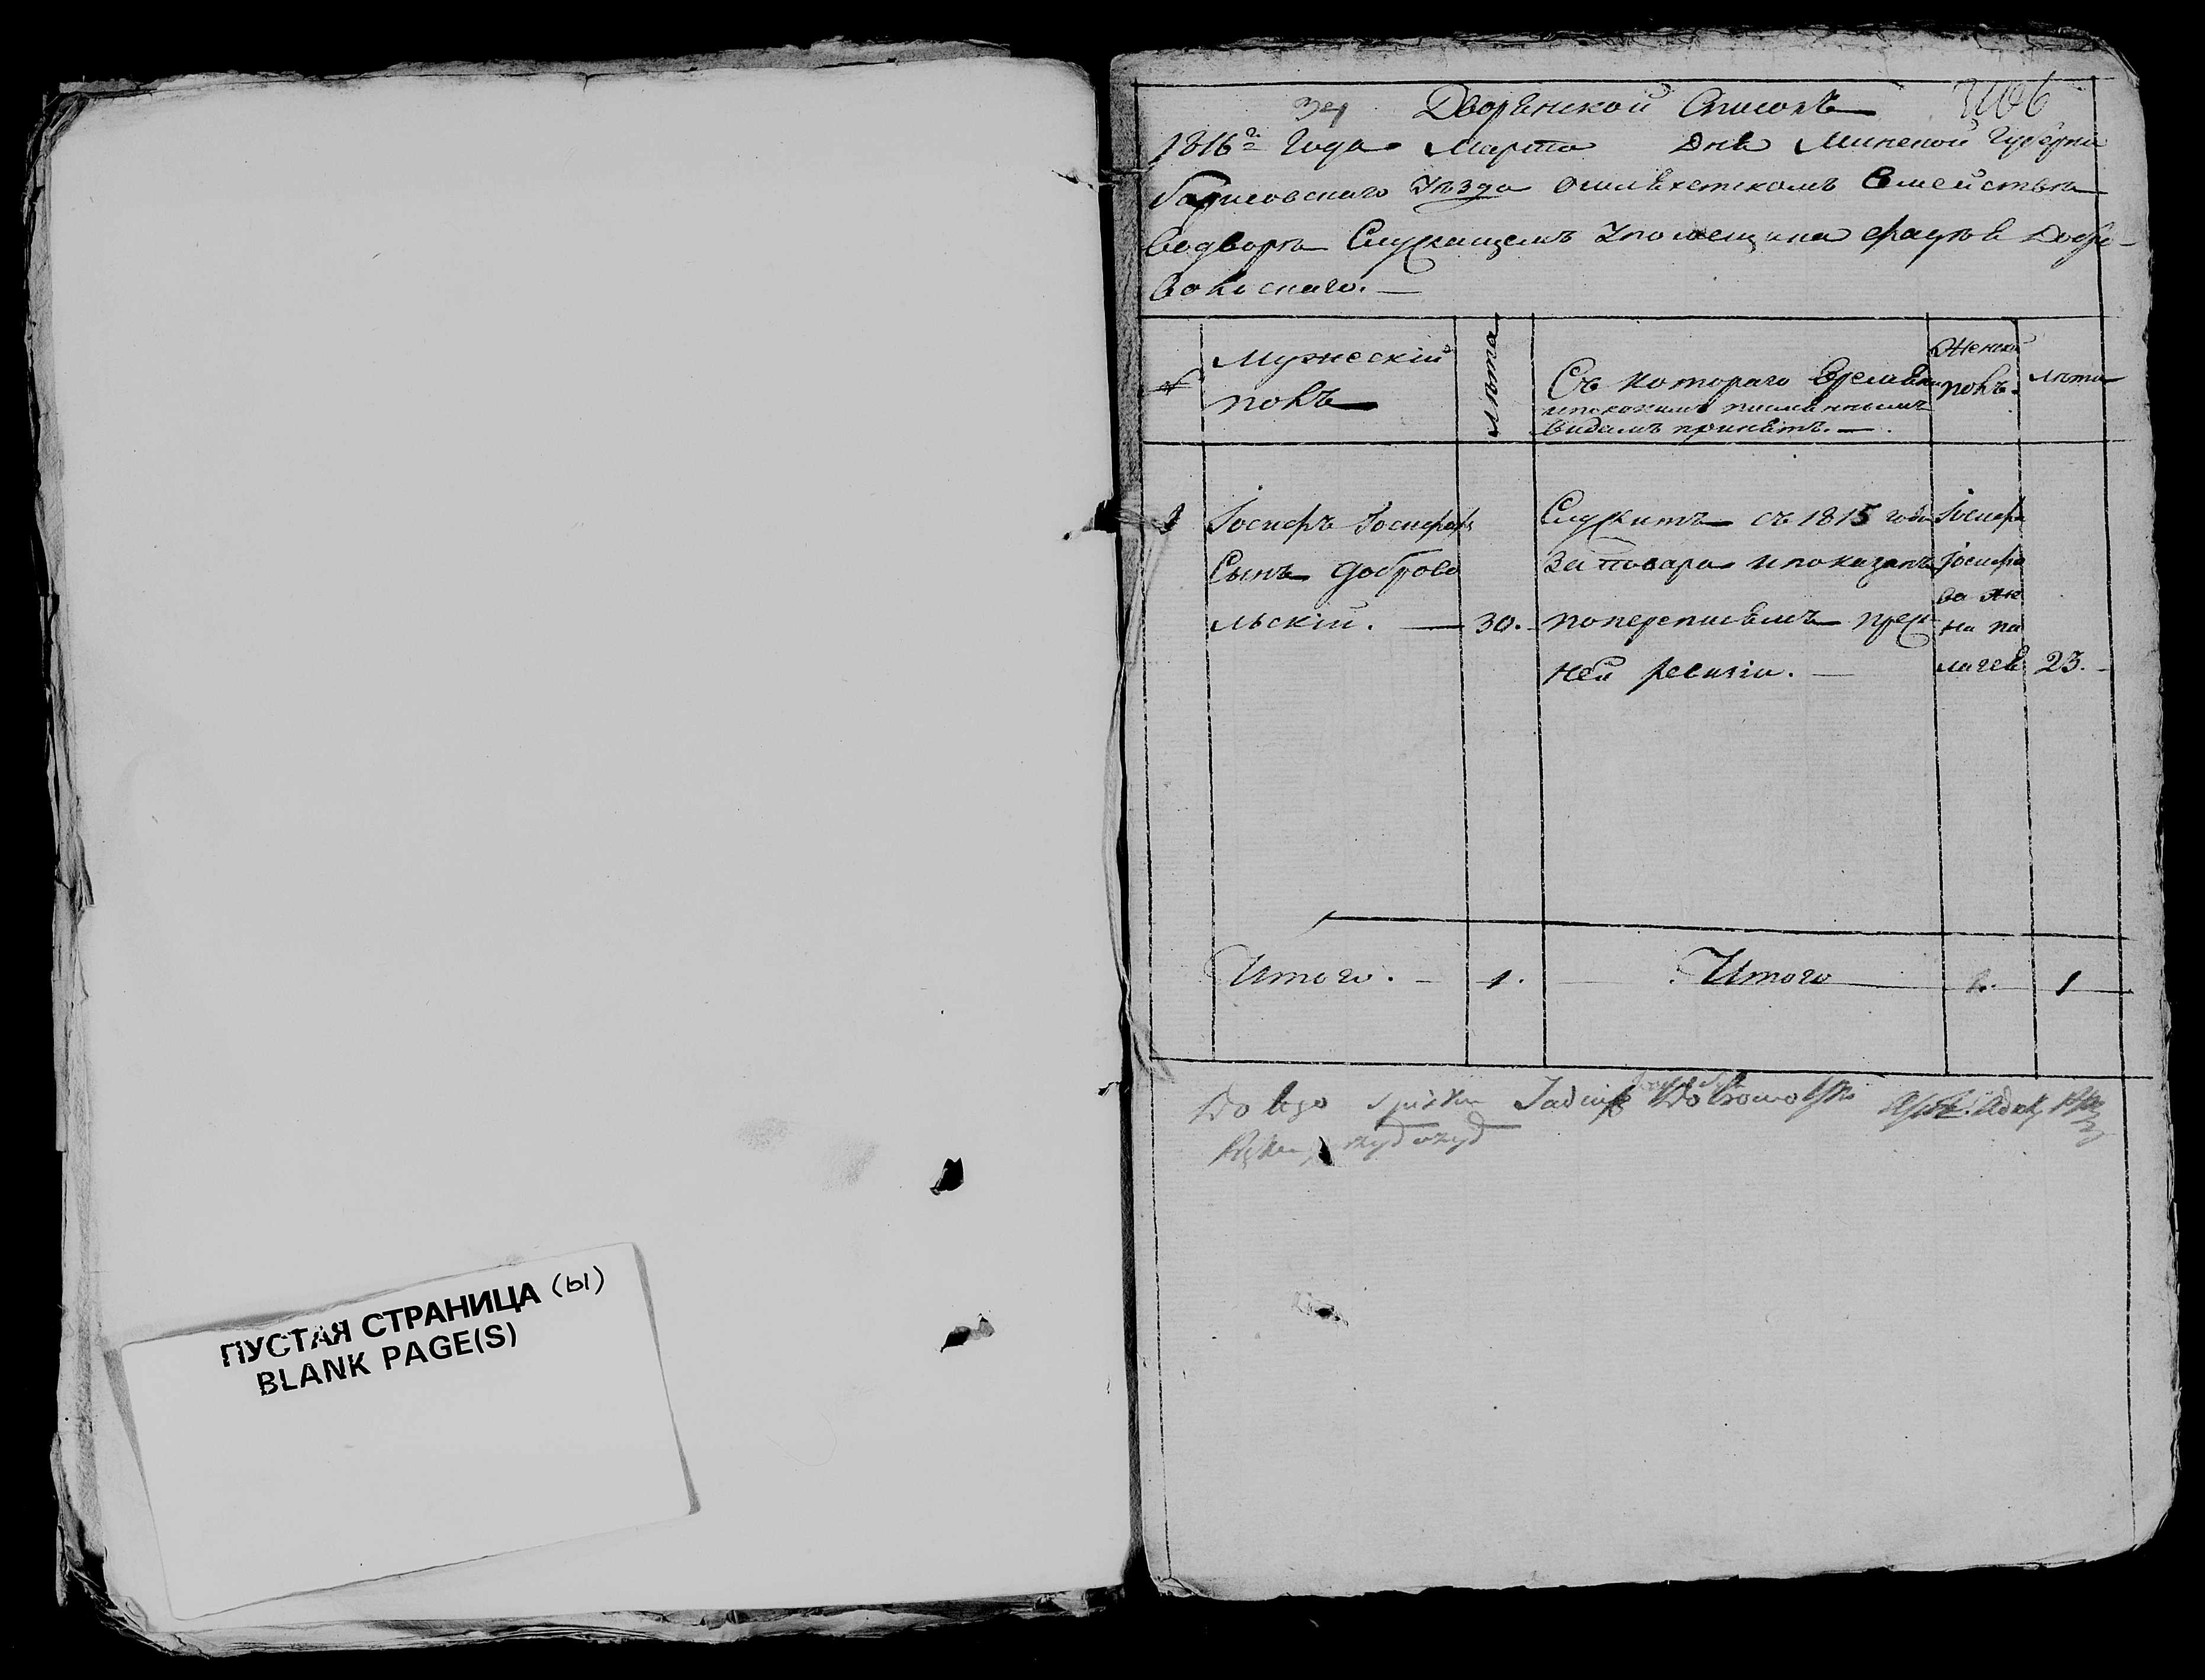 ПУСТАЯ СТРАНИЦА (ы)
BLANK PAGE(S)
Дворянской Списокъ
1816го Года Марта Дня Минской Губерни
Борисовскаго Уѣзда о шляхетскомъ Семействѣ
Водворѣ Служащемъ Упомещика Фадѣя Добро-
Вольскаго. —
№
Мужескій
полъ
лѣта
Съ котораго Времяни
ипокакимъ писменнымъ
Видамъ принятъ. —
Женской
полъ.
лѣта
1 Іосифъ Іосифов
Сынъ Доброво
льскій. — 30.
Служитъ съ 1815 года
За повара ипоказанъ
поперепислямъ преж
ней ревизіи. —
Іосифа
Іосифо
ва же
на па
лагея 23.
Итого. — 1. Итого 1. 1
Do tego Dobrowolski